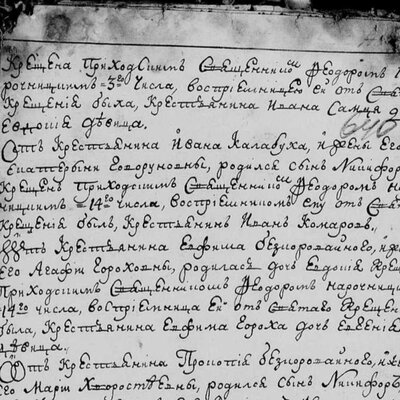 Крещена приходскимъ Священникомъ Ѳеодоромъ н
рочницкимъ 3го числа, воспріемницею ей отъ Свя
Крещенія была, Крестьянина Ивана Самця д
Евдокія дѣвица.
640
Отъ Крестьянина Ивана Калабуха, и жены Его
Екатерины Говоруновны, родился сынъ Никифоръ
Крещенъ приходскимъ Священникомъ Ѳеодоромъ На
ницкимъ 14го числа, воспріемникомъ ему отъ Свя
Крещенія былъ, Крестьянинъ Иванъ Комаровъ.
Отъ Крестьянина Евфима Безкоровайного, и же
Его Агафіи Гороховны, родилась дочь Евдокія Крещ
приходскимъ Священникомъ Ѳеодоромъ нарочниц
14го числа, воспріемница Ей отъ Святаго Крещен
была, Крестьянина Евфима Гороха дочь Евгенія
дѣвица.
Отъ Крестьянина Прокопія Безкоровайного, и же
Его Марѳы Хворостѣвны, родился сынъ Никифоръ